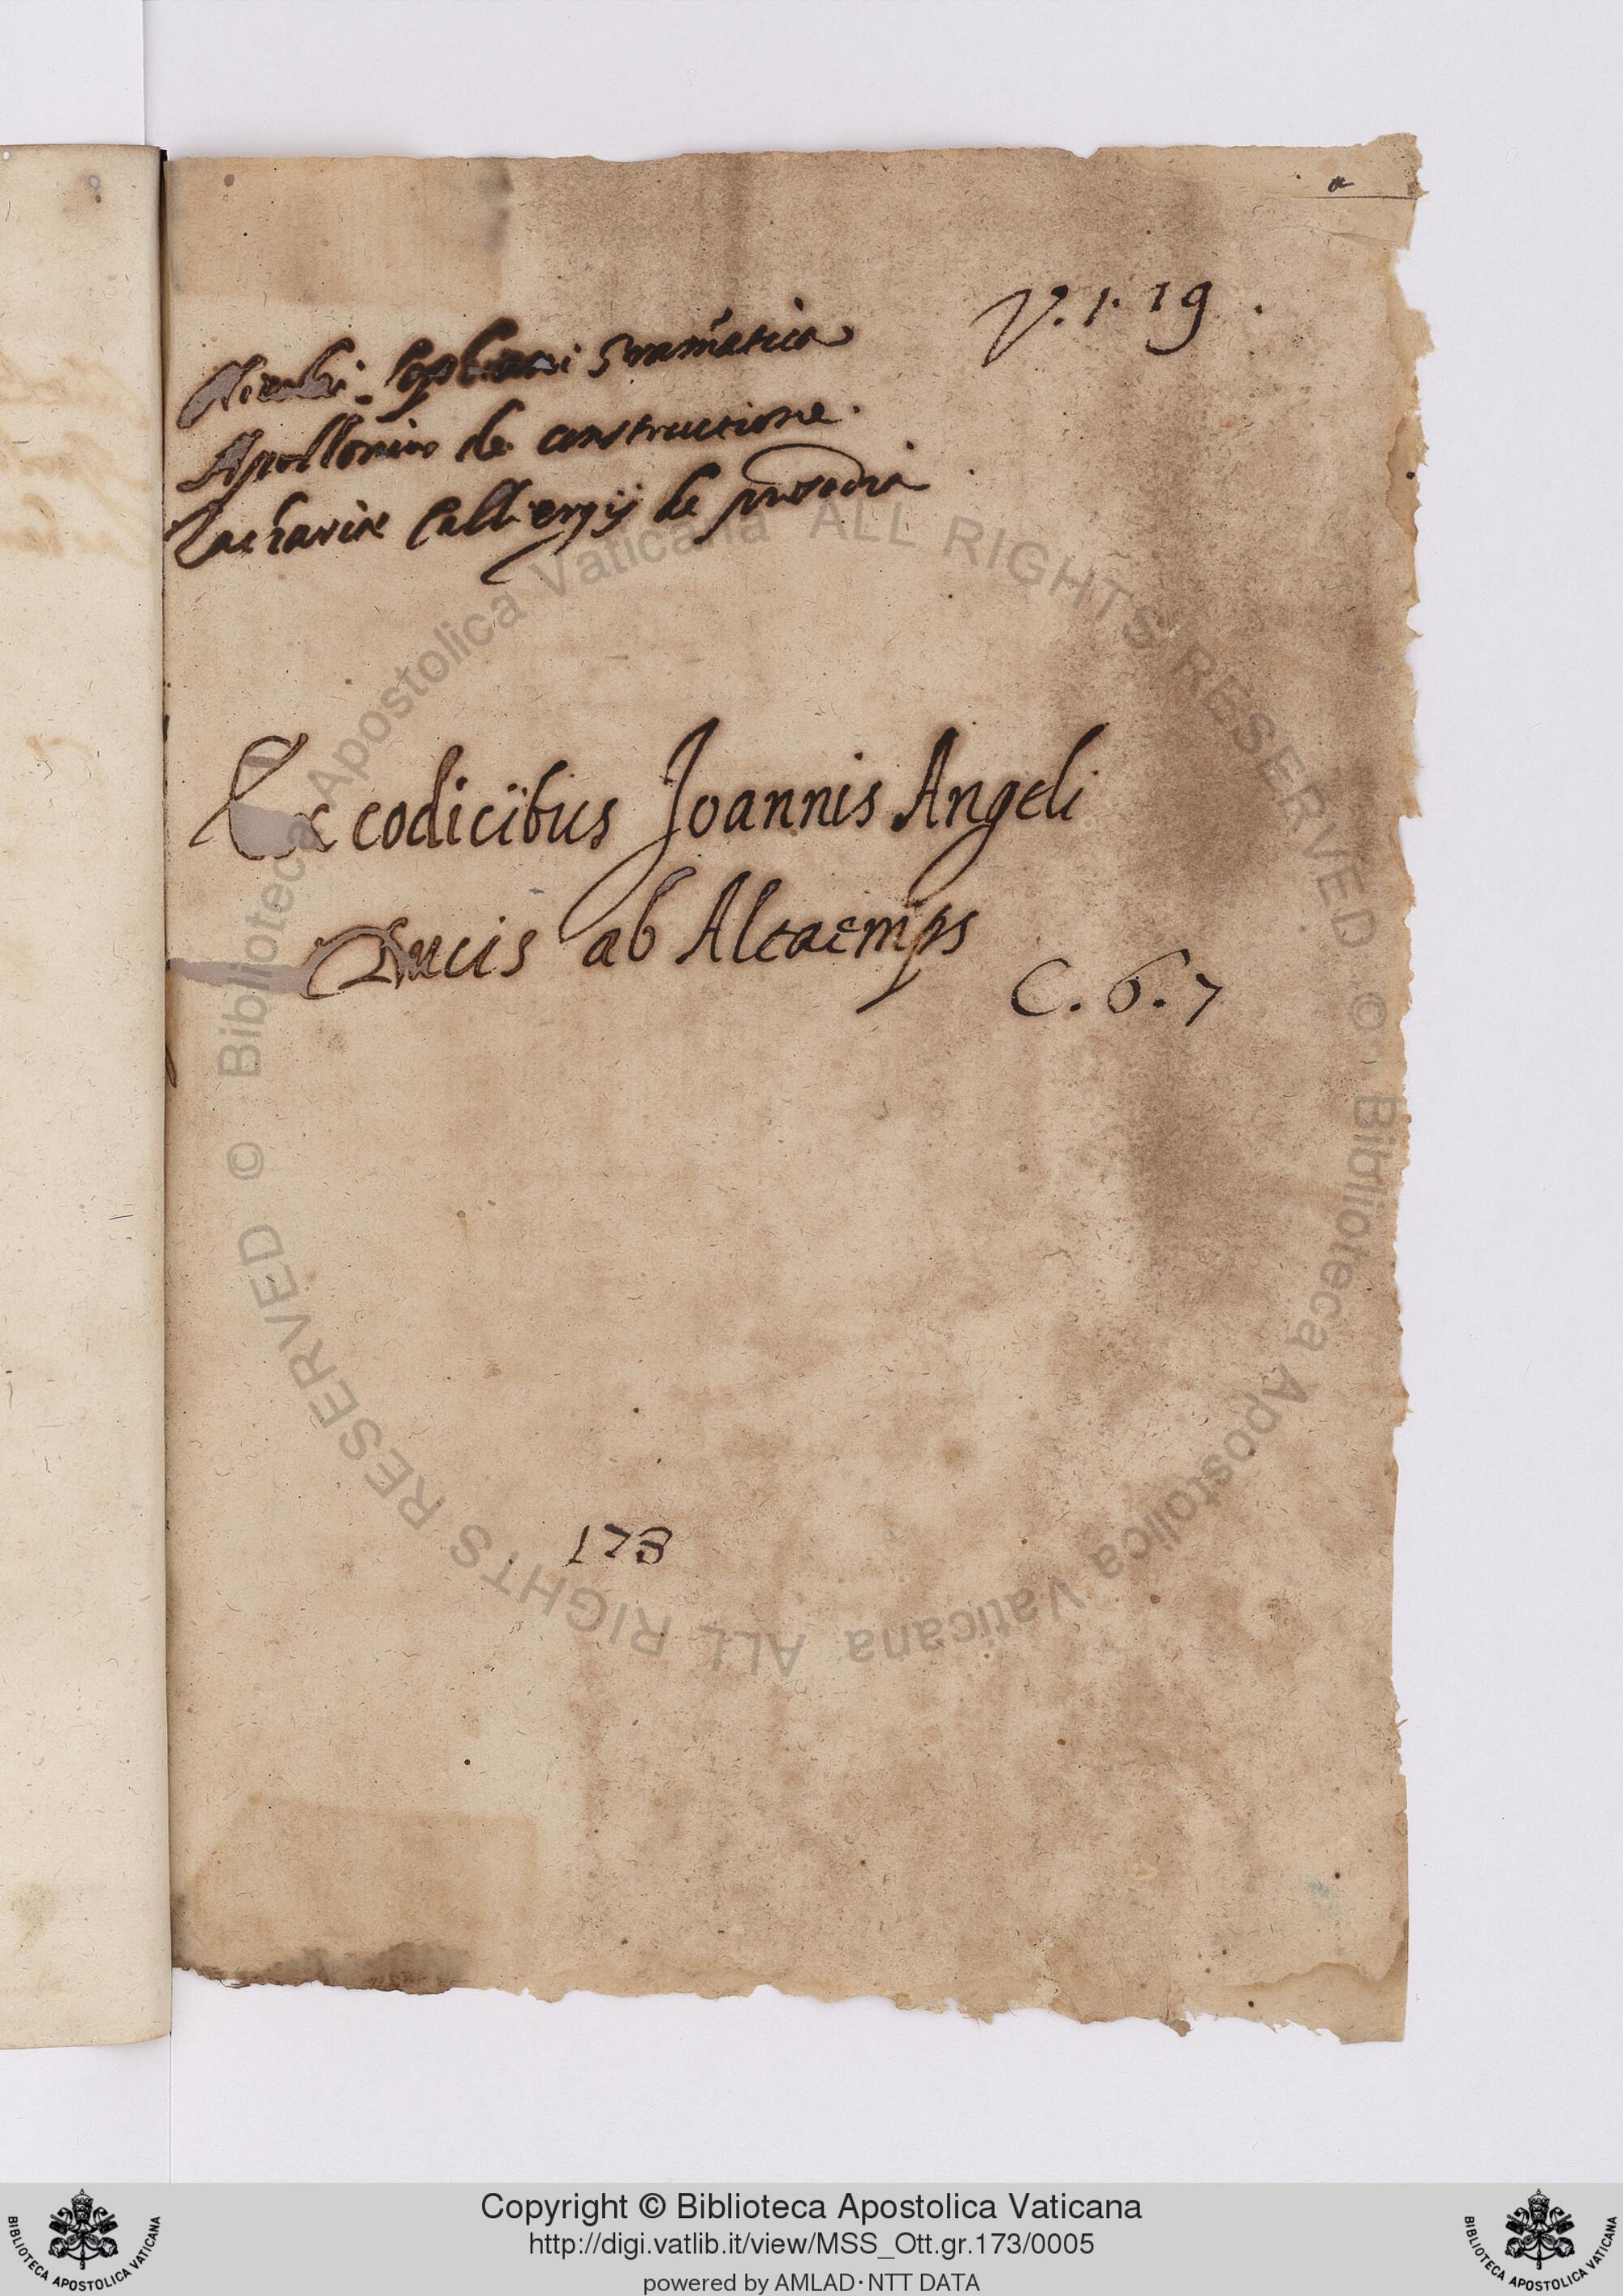 a
V. 1. 19.
Nicolai Sophiani Grammatica
Apollonius de constructione.
Zachariae Calliergij de prosodia
Ex codicibus Joannis Angeli
Ducis ab Altaemps
C. 6. 7
173
© Biblioteca Apostolica Vaticana ALL RIGHTS RESERVED
© Biblioteca Apostolica Vaticana ALL RIGHTS RESERVED
Copyright © Biblioteca Apostolica Vaticana
http://digi.vatlib.it/view/MSS_Ott.gr.173/0005
powered by AMLAD·NTT DATA
BIBLIOTECA APOSTOLICA VATICANA
BIBLIOTECA APOSTOLICA VATICANA